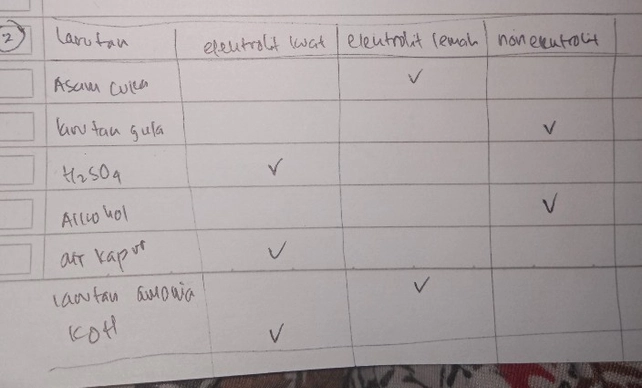 2 Larutan elektrolit kuat elektrolit lemah non elektrolit
Asam cuka ✓
larutan gula ✓
H2SO4 ✓
Alkohol ✓
air kapur ✓
larutan amonia ✓
KOH ✓